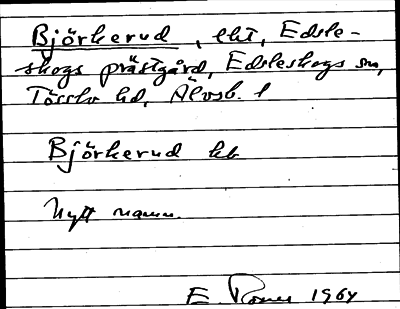 Björkerud, lht, Edsle-
skogs prästgård, Edsleskogs sn,
Tössbo hd, Älvsb. l
Björkerud lb
Nytt namn.
E. 1964